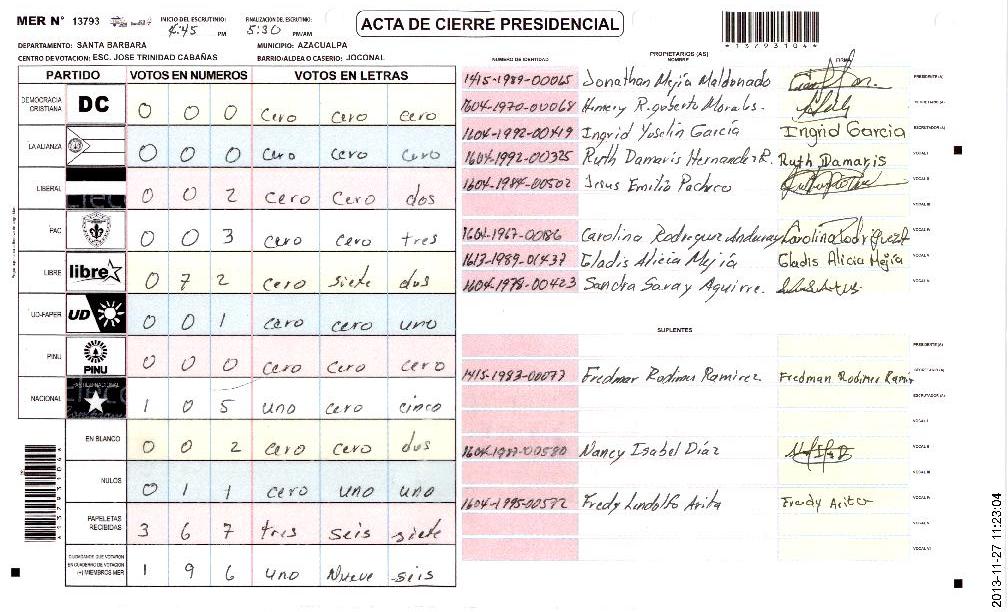 MER N° 13793
INICIO DEL ESCRUTINIO: 4:45 PM
FINALIZACION DEL ESCRUTINIO: 5:30 PM/AM
ACTA DE CIERRE PRESIDENCIAL
*13793104*
DEPARTAMENTO: SANTA BARBARA
MUNICIPIO: AZACUALPA
CENTRO DE VOTACION: ESC. JOSE TRINIDAD CABAÑAS
BARRIO/ALDEA O CASERIO: JOCONAL
PARTIDO VOTOS EN NUMEROS VOTOS EN LETRAS
DEMOCRACIA CRISTIANA DC 0 0 0 cero cero cero
LA ALIANZA 0 0 0 cero cero cero
LIBERAL 0 0 2 cero cero dos
PAC 0 0 3 cero cero tres
LIBRE libre 0 7 2 cero siete dos
UD-FAPER UD 0 0 1 cero cero uno
PINU PINU 0 0 0 cero cero cero
NACIONAL 1 0 5 uno cero cinco
EN BLANCO 0 0 2 cero cero dos
NULOS 0 1 1 cero uno uno
PAPELETAS RECIBIDAS 3 6 7 tres seis siete
CIUDADANOS QUE VOTARON EN CUADERNO DE VOTACION (+) MIEMBROS MER 1 9 6 uno Nueve seis
PROPIETARIOS (AS)
NUMERO DE IDENTIDAD NOMBRE FIRMA
1415-1989-00065 Jonathan Mejía Maldonado PRESIDENTE(A)
1604-1970-00068 Rigoberto Morales. SECRETARIO(A)
1604-1992-00419 Ingrid Yoselin García Ingrid Garcia ESCRUTADOR(A)
1604-1992-00325 Ruth Damaris Hernandez R. Ruth Damaris VOCAL I
1604-1984-00502 Jesus Emilio Pacheco VOCAL II
VOCAL III
1604-1967-00186 Carolina Rodriguez Carolina Rodriguez VOCAL IV
1613-1989-01437 Gladis Alicia Mejía Gladis Alicia Mejía VOCAL V
1604-1978-00423 Sandra Saray Aguirre. VOCAL VI
SUPLENTES
PRESIDENTE(A)
1415-1983-00077 Fredman Rodimer Ramirez Fredman Rodimer Ramir SECRETARIO(A)
ESCRUTADOR(A)
VOCAL I
1604-1987-00580 Nancy Isabel Díaz VOCAL II
VOCAL III
1604-1995-00572 Fredy Lindolfo Arita Fredy Arita VOCAL IV
VOCAL V
VOCAL VI
2013-11-27 11:23:04